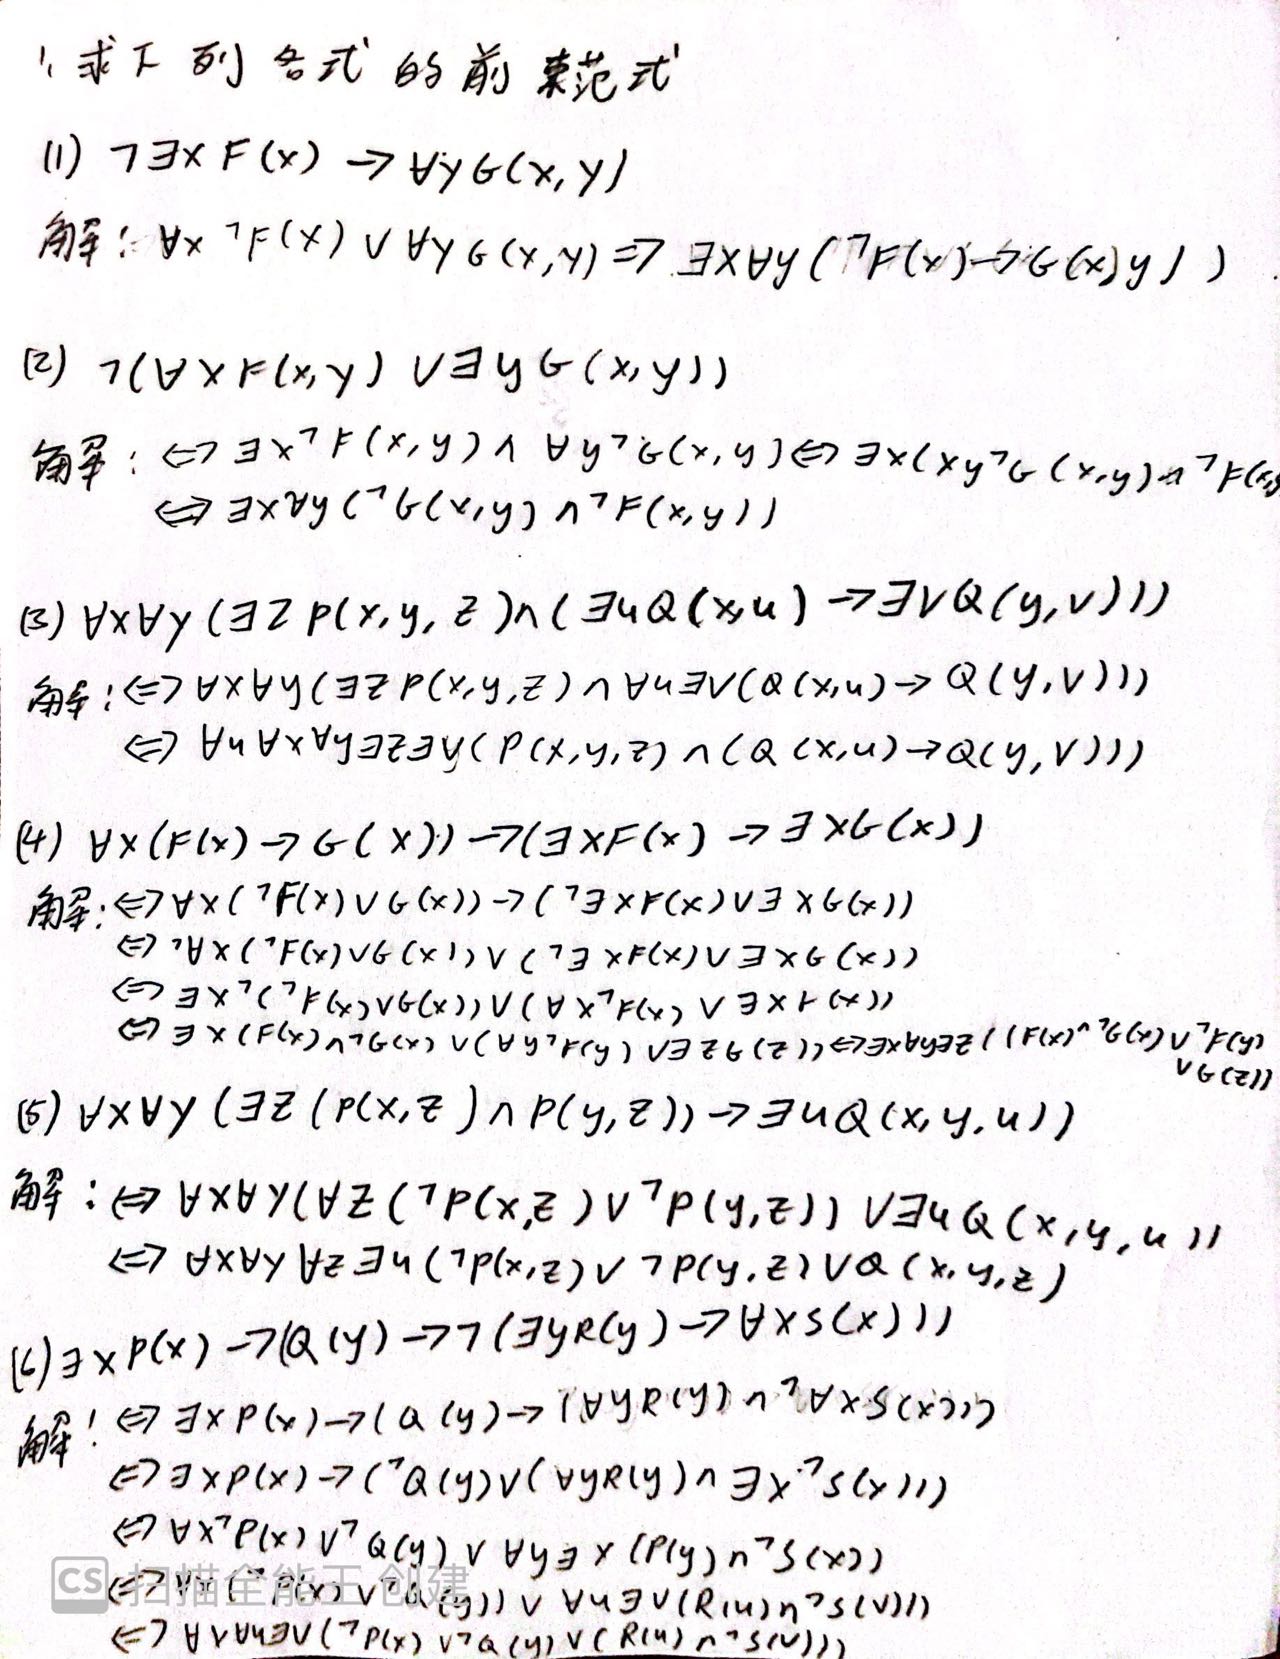 1、求下列各式的前束范式
(1) ¬∃x F(x) → ∀y G(x, y)
解: ∀x ¬F(x) ∨ ∀y G(x, y) ⇔ ∃x∀y (¬F(x) → G(x, y))
(2) ¬(∀x F(x, y) ∨ ∃y G(x, y))
解: ⇔ ∃x¬F(x, y) ∧ ∀y¬G(x, y) ⇔ ∃x(∀y¬G(x, y) ∧ ¬F(x,y
⇔ ∃x∀y (¬G(x, y) ∧ ¬F(x, y))
(3) ∀x∀y (∃z P(x, y, z) ∧ (∃u Q(x, u) → ∃v Q(y, v)))
解: ⇔ ∀x∀y (∃z P(x, y, z) ∧ ∀u∃v (Q(x, u) → Q(y, v)))
⇔ ∀u∀x∀y∃z∃v (P(x, y, z) ∧ (Q(x, u) → Q(y, v)))
(4) ∀x (F(x) → G(x)) → (∃x F(x) → ∃x G(x))
解: ⇔ ∀x (¬F(x) ∨ G(x)) → (¬∃x F(x) ∨ ∃x G(x))
⇔ ¬∀x (¬F(x) ∨ G(x)) ∨ (¬∃x F(x) ∨ ∃x G(x))
⇔ ∃x¬(¬F(x) ∨ G(x)) ∨ (∀x¬F(x) ∨ ∃x F(x))
⇔ ∃x (F(x) ∧ ¬G(x) ∨ (∀y¬F(y) ∨ ∃z G(z)) ⇔ ∃x∀y∃z ((F(x) ∧ ¬G(x) ∨ ¬F(y)
∨ G(z))
(5) ∀x∀y (∃z (P(x, z) ∧ P(y, z)) → ∃u Q(x, y, u))
解: ⇔ ∀x∀y (∀z (¬P(x, z) ∨ ¬P(y, z)) ∨ ∃u Q(x, y, u))
⇔ ∀x∀y∀z∃u (¬P(x, z) ∨ ¬P(y, z) ∨ Q(x, y, z)
(6) ∃x P(x) → (Q(y) → ¬(∃y R(y) → ∀x S(x)))
解: ⇔ ∃x P(x) → (Q(y) → (∀y R(y) ∧ ¬∀x S(x)))
⇔ ∃x P(x) → (¬Q(y) ∨ (∀y R(y) ∧ ∃x¬S(x)))
⇔ ∀x¬P(x) ∨ ¬Q(y) ∨ ∀y∃x (P(y) ∧ ¬S(x))
⇔ ∀x (¬P(x) ∨ ¬Q(y)) ∨ ∀u∃v (R(u) ∧ ¬S(v)))
⇔ ∀x∀u∃v (¬P(x) ∨ ¬Q(y) ∨ (R(u) ∧ ¬S(v)))
CS 扫描全能王 创建